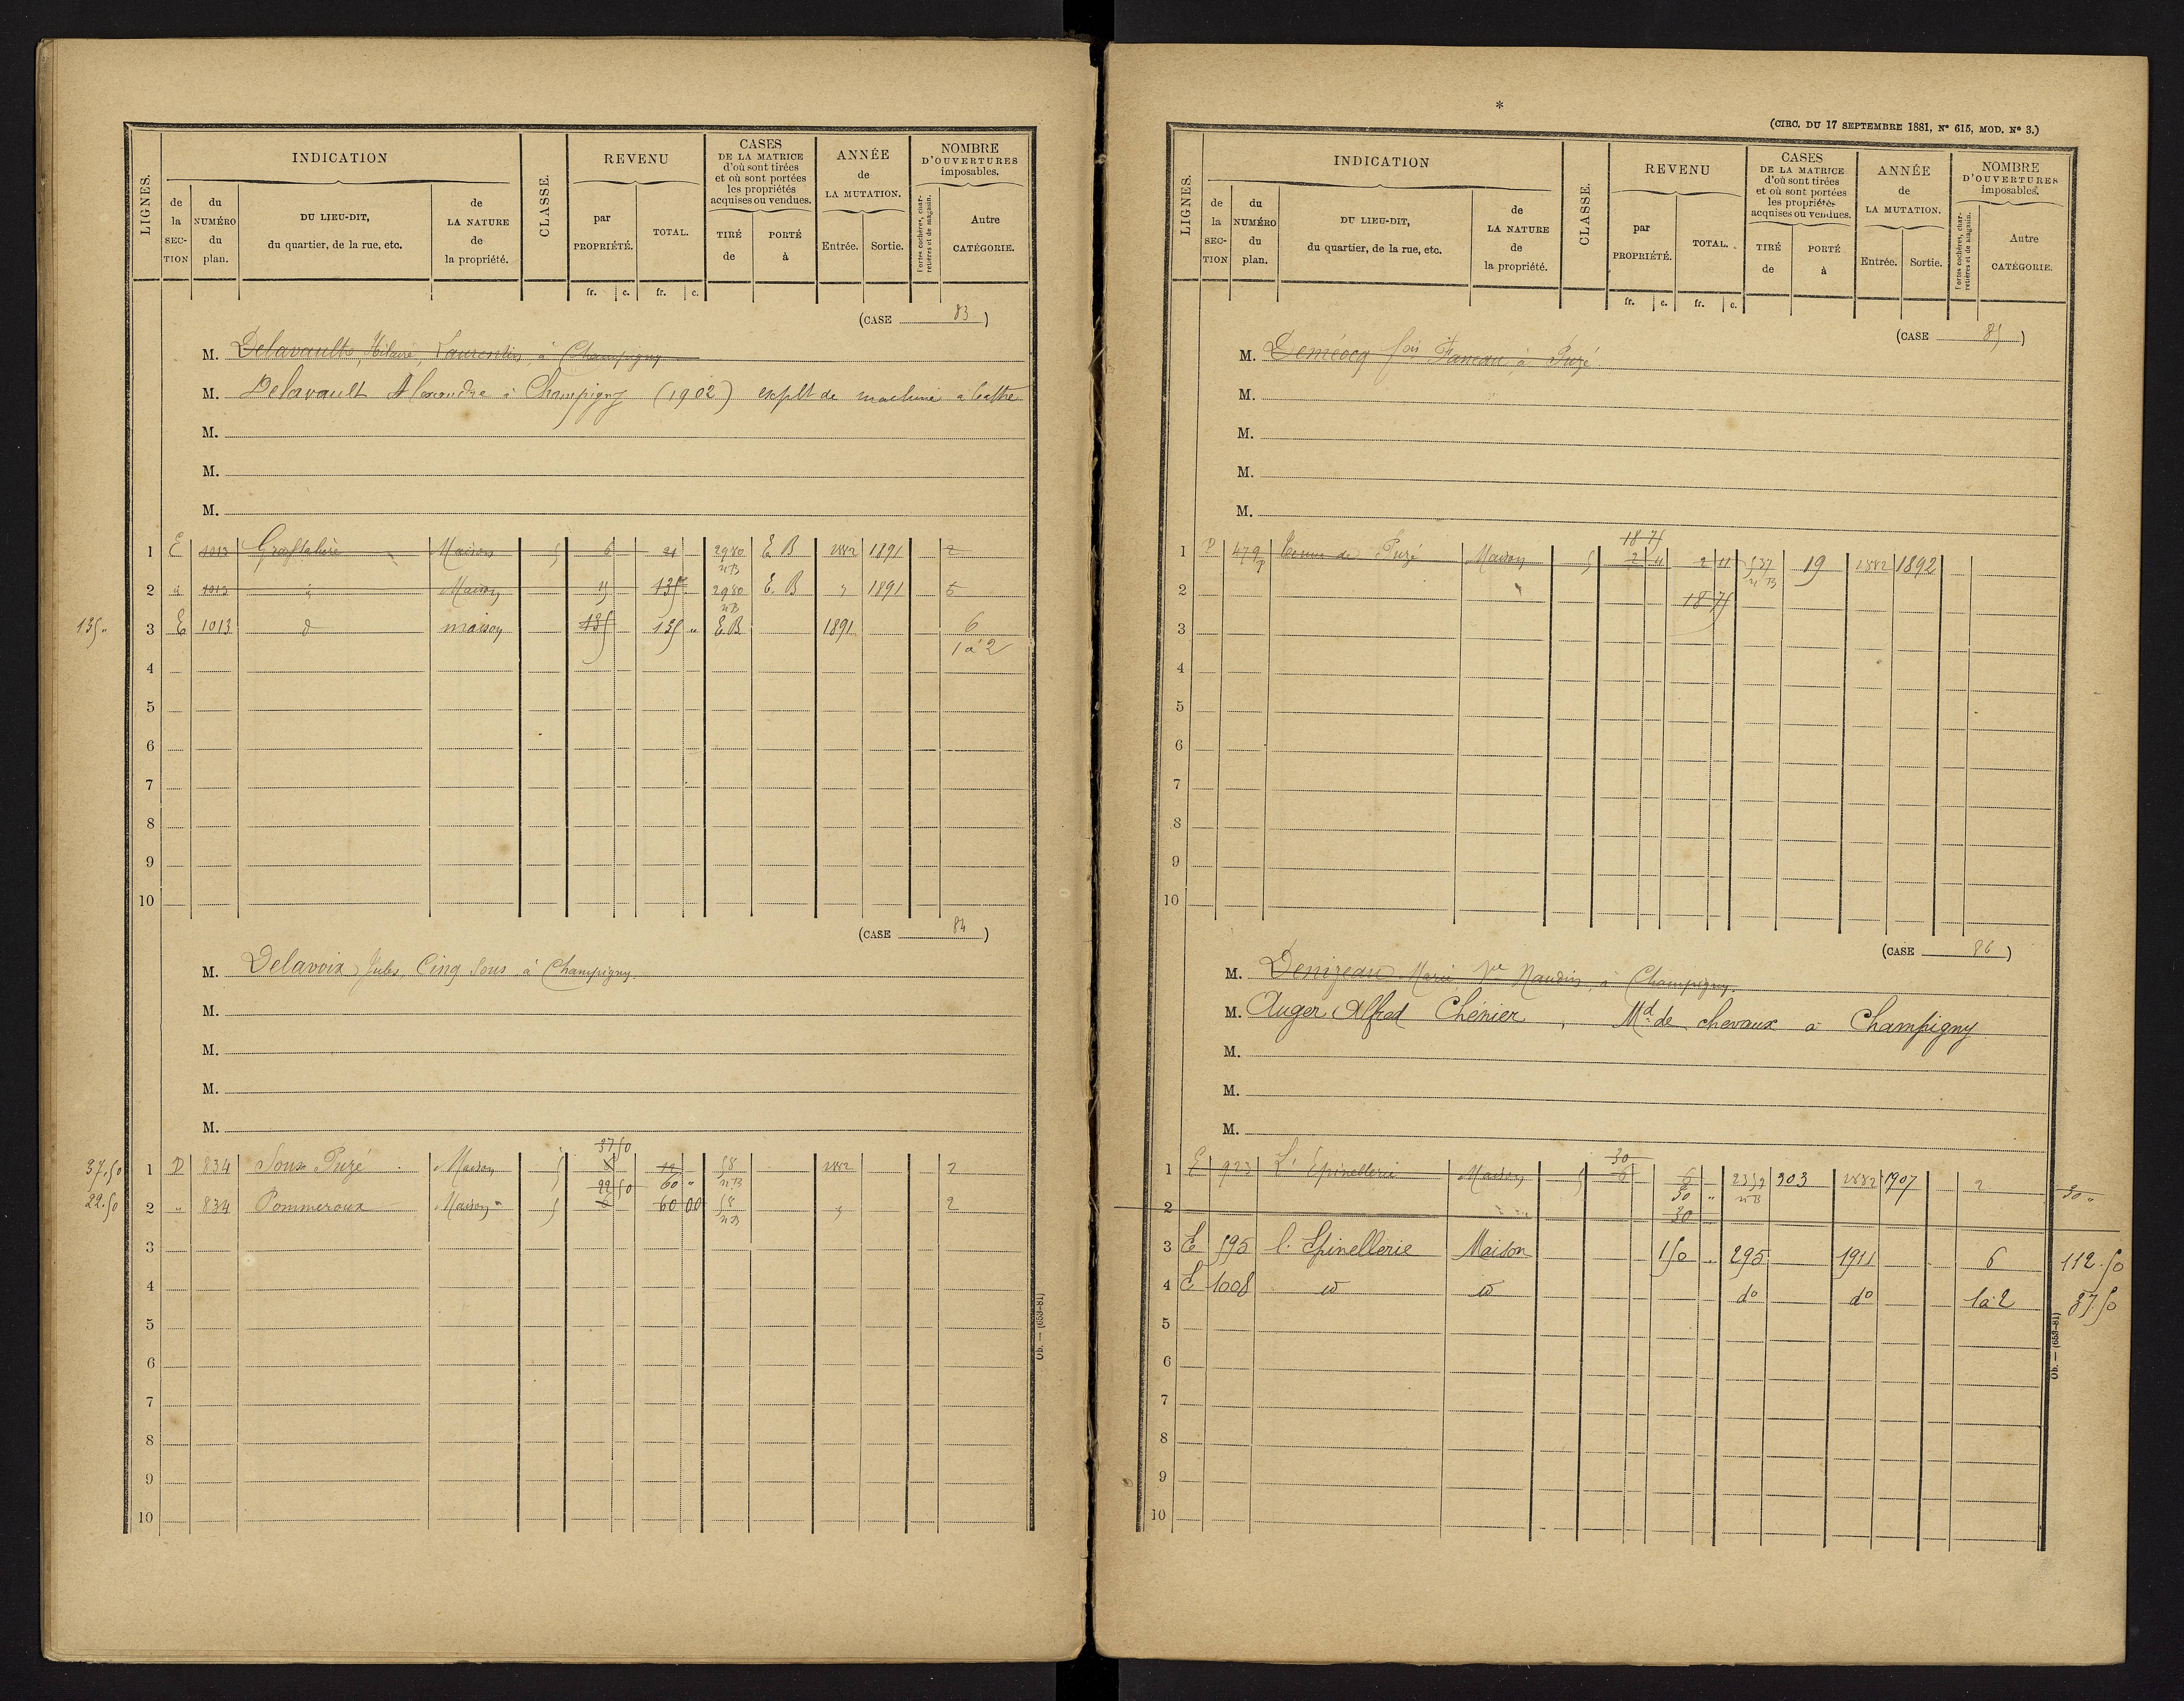 LIGNES.
INDICATION
de la SECTION
du NUMÉRO du plan.
DU LIEU-DIT, du quartier, de la rue, etc.
de LA NATURE de la propriété.
CLASSE.
REVENU
par PROPRIÉTÉ.
TOTAL.
fr. c. fr. c.
CASES DE LA MATRICE d'où sont tirées et où sont portées les propriétés acquises ou vendues.
TIRÉ de
PORTÉ à
ANNÉE de LA MUTATION.
Entrée. Sortie.
NOMBRE D'OUVERTURES imposables.
Portes cochères, charretières et de magasin.
Autre CATÉGORIE.
(CASE 83)
M. Delavault, Hilaire, Laurentin, à Champigny
M. Delavault Alexandre à Champigny (1902) explt de machine a battre
M.
M.
M.
1 E 1013 Maison 5 6 21 2980 NB E B 1882 1891 2
2 1013 Maison 135 2980 NB E. B 1891 5
135 " 3 E 1013 d maison 135 135 " E.B 1891 6
1 à 2
4
5
6
7
8
9
10
(CASE 84)
M. Delavoix, Jules, Cinq Sous à Champigny.
M.
M.
M.
M.
37 50
37.50 1 D 834 Sous Puzé Maison 5 12 58 NB 1882 2
22 50 60 "
22.50 2 " 834 Pommeroux Maison 5 6 60 00 58 NB 2
3
4
5
6
7
8
9
10
Ob. — (653-81)
*
(CIRC. DU 17 SEPTEMBRE 1881, N° 615, MOD. N° 3.)
LIGNES.
INDICATION
de la SECTION
du NUMÉRO du plan.
DU LIEU-DIT, du quartier, de la rue, etc.
de LA NATURE de la propriété.
CLASSE.
REVENU
par PROPRIÉTÉ.
TOTAL.
fr. c. fr. c.
CASES DE LA MATRICE d'où sont tirées et où sont portées les propriétés acquises ou vendues.
TIRÉ de
PORTÉ à
ANNÉE de LA MUTATION.
Entrée. Sortie.
NOMBRE D'OUVERTURES imposables.
Portes cochères, charretières et de magasin.
Autre CATÉGORIE.
(CASE 85)
M. Demeocq fois Faneau à Puzé
M.
M.
M.
M.
18 75
1 479p de Puzé Maison 5 2 11 2 11 537 NB 19 1882 1892
2 18 75
3
4
5
6
7
8
9
10
(CASE 86)
M. Denizeau Marie Vve Naudin, à Champigny.
M. Auger Alfred Chénier, Md de chevaux à Champigny
M.
M.
M.
30
1 E 923 L'Epinellerie Maison 5 6 6 NB 303 1882 1907 2
30 " 30 "
2 30
3 E 595 l'Epinellerie Maison 150 " 295 1911 6 112.50
4 E 1008 do do do do 1 à 2 37.50
5
6
7
8
9
10
Ob. — (653-81)